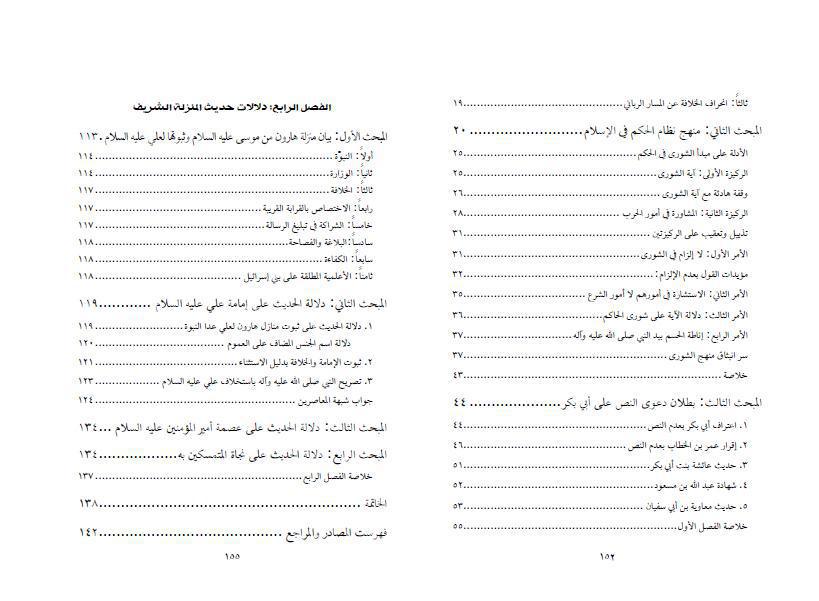 ثالثاً: انحراف الخلافة عن المسار الرباني ................ ١٩
المبحث الثاني: منهج نظام الحكم في الإسلام ................ ٢٠
الأدلة على مبدأ الشورى في الحكم ................ ٢٥
الركيزة الأولى: آية الشورى ................ ٢٥
وقفة هادئة مع آية الشورى ................ ٢٦
الركيزة الثانية: المشاورة في أمور الحرب ................ ٢٨
تذييل وتعقيب على الركيزتين ................ ٣١
الأمر الأول: لا إلزام في الشورى ................ ٣١
مؤيدات القول بعدم الإلزام: ................ ٣٢
الأمر الثاني: الاستشارة في أمورهم لا أمور الشرع ................ ٣٥
الأمر الثالث: دلالة الآية على شورى الحاكم ................ ٣٦
الأمر الرابع: إناطة الحسم بيد النبي صلى الله عليه وآله ................ ٣٧
سر انبثاق منهج الشورى ................ ٣٧
خلاصة ................ ٤٣
المبحث الثالث: بطلان دعوى النص على أبي بكر ................ ٤٤
١. اعتراف أبي بكر بعدم النص ................ ٤٤
٢. إقرار عمر بن الخطاب بعدم النص ................ ٤٦
٣. حديث عائشة بنت أبي بكر ................ ٥١
٤. شهادة عبد الله بن مسعود ................ ٥٢
٥. حديث معاوية بن أبي سفيان ................ ٥٣
خلاصة الفصل الأول ................ ٥٥
١٥٢
الفصل الرابع: دلالات حديث المنزلة الشريف
المبحث الأول: بيان منزلة هارون من موسى عليه السلام وثبوتها لعلي عليه السلام . ١١٣
أولاً: النبوّة ................ ١١٤
ثانياً: الوزارة ................ ١١٤
ثالثاً: الخلافة ................ ١١٧
رابعاً: الاختصاص بالقرابة القريبة ................ ١١٧
خامساً: الشراكة في تبليغ الرسالة ................ ١١٧
سادساً: البلاغة والفصاحة ................ ١١٨
سابعاً: الكفاءة ................ ١١٨
ثامناً: الأعلمية المطلقة على بني إسرائيل ................ ١١٨
المبحث الثاني: دلالة الحديث على إمامة علي عليه السلام ............ ١١٩
١. دلالة الحديث على ثبوت منازل هارون لعلي عدا النبوة ................ ١١٩
دلالة اسم الجنس المضاف على العموم ................ ١٢٠
٢. ثبوت الإمامة والخلافة بدليل الاستثناء ................ ١٢١
٣. تصريح النبي صلى الله عليه وآله باستخلاف علي عليه السلام ................ ١٢٣
جواب شبهة المعاصرين ................ ١٢٤
المبحث الثالث: دلالة الحديث على عصمة أمير المؤمنين عليه السلام ... ١٣٤
المبحث الرابع: دلالة الحديث على نجاة المتمسكين به ................ ١٣٤
خلاصة الفصل الرابع ................ ١٣٧
الخاتمة ................ ١٣٨
فهرست المصادر والمراجع ................ ١٤٢
١٥٥